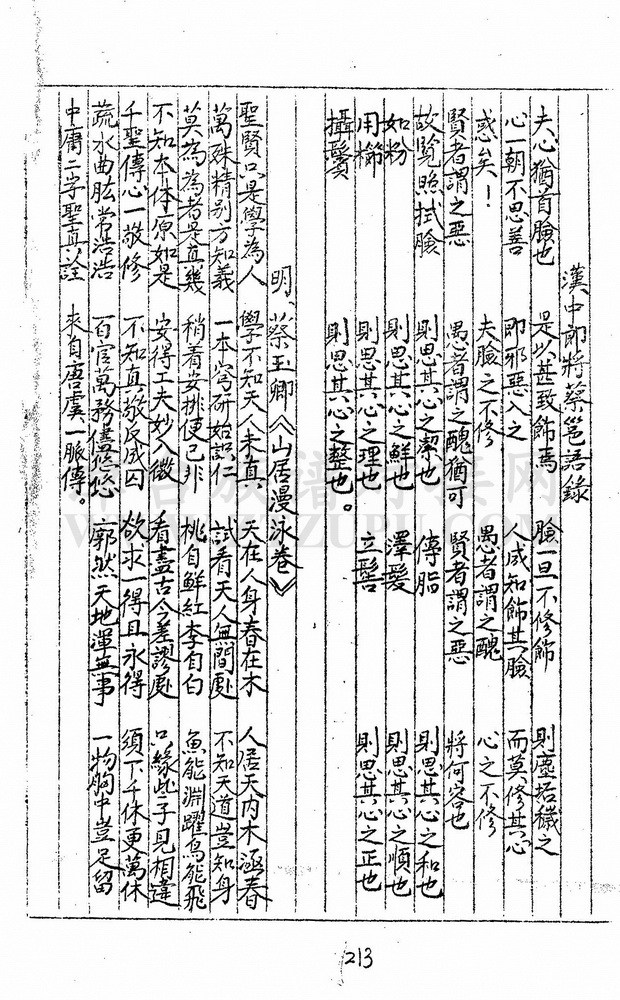 漢中郎將蔡邕語錄
夫心猶首臉也 是以甚致飾焉 臉一旦不修飾 則塵垢穢之
心一朝不思善 即邪惡入之 人咸知飾其臉 而莫修其心
惑矣! 夫臉之不修 愚者謂之醜 心之不修
賢者謂之惡 愚者謂之醜猶可 賢者謂之惡 將何容也
故覽照拭臉 則思其心之潔也 傅脂 則思其心之和也
如粉 則思其心之鮮也 澤髮 則思其心之順也
用櫛 則思其心之理也 立髻 則思其心之正也
攝鬢 則思其心之整也。
明、蔡玉卿《山居漫泳卷》
聖賢只是學為人 學不知天人未真 天在人身春在木 人居天內木涵春
萬殊精別方知義 一本窮研始識仁 試看天人無間處 不知天道豈知身
莫為為者是真幾 稍着安排便已非 桃自鮮紅李自白 魚能淵躍鳥能飛
不知本体原如是 安得工夫妙入微 看盡古今差謬處 只緣此子見相違
千聖傳心一敬修 不知真敬反成囚 欲求一得且永得 須下千休更萬休
蔬水曲肱常浩浩 百官萬務僅悠悠 廓然天地渾無事 一物胸中豈足留
中庸二字聖真詮 來自唐虞一脈傳。
213